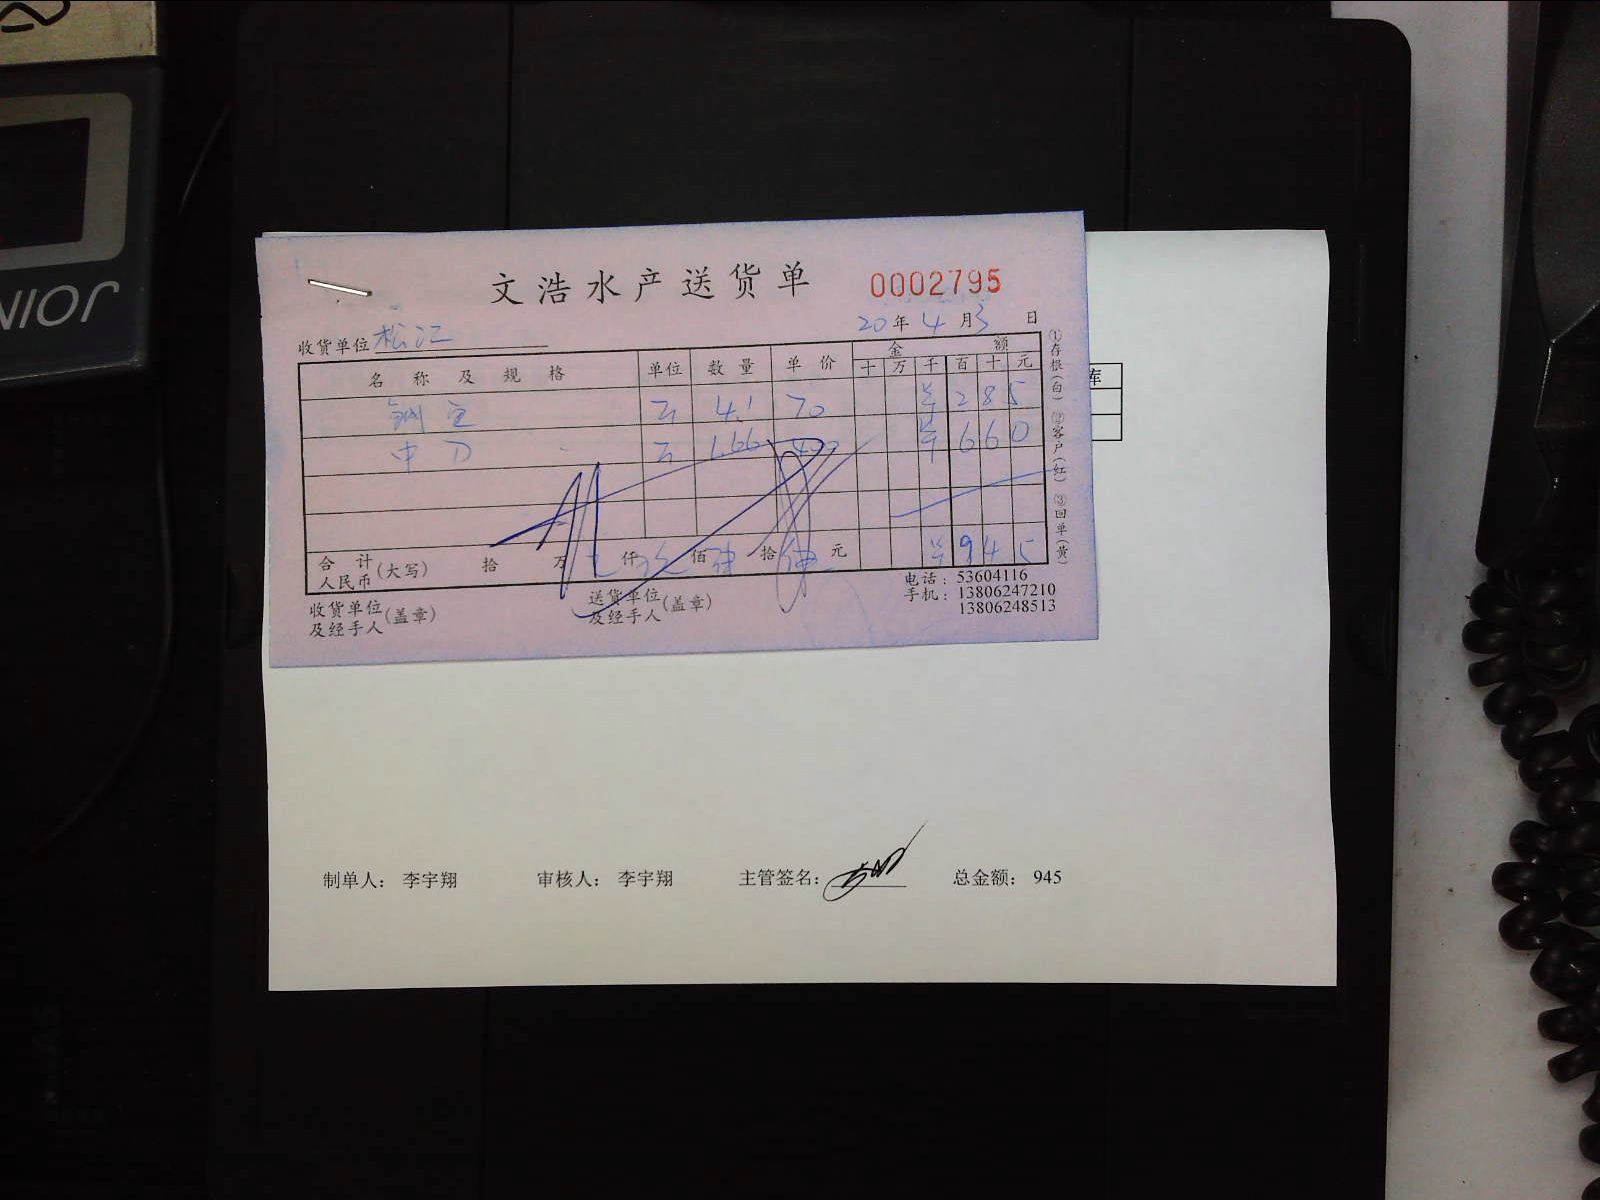 JOINI
文浩水产送货单 0002795
20年4月3日
收货单位 松江
名称及规格 单位 数量 单价 金额
十 万 千 百 十 元
4.1 70 ¥ 2 8 5
中刀 1.66 400 ¥ 6 6 0
合计 人民币(大写) 拾 万 仟 玖佰 肆拾 伍元 ¥ 9 4 5
收货单位及经手人(盖章) 送货单位及经手人(盖章)
电话:53604116
手机:13806247210
13806248513
①存根(白) ②客户(红) ③回单(黄)
库
制单人: 李宇翔 审核人: 李宇翔 主管签名: 总金额: 945